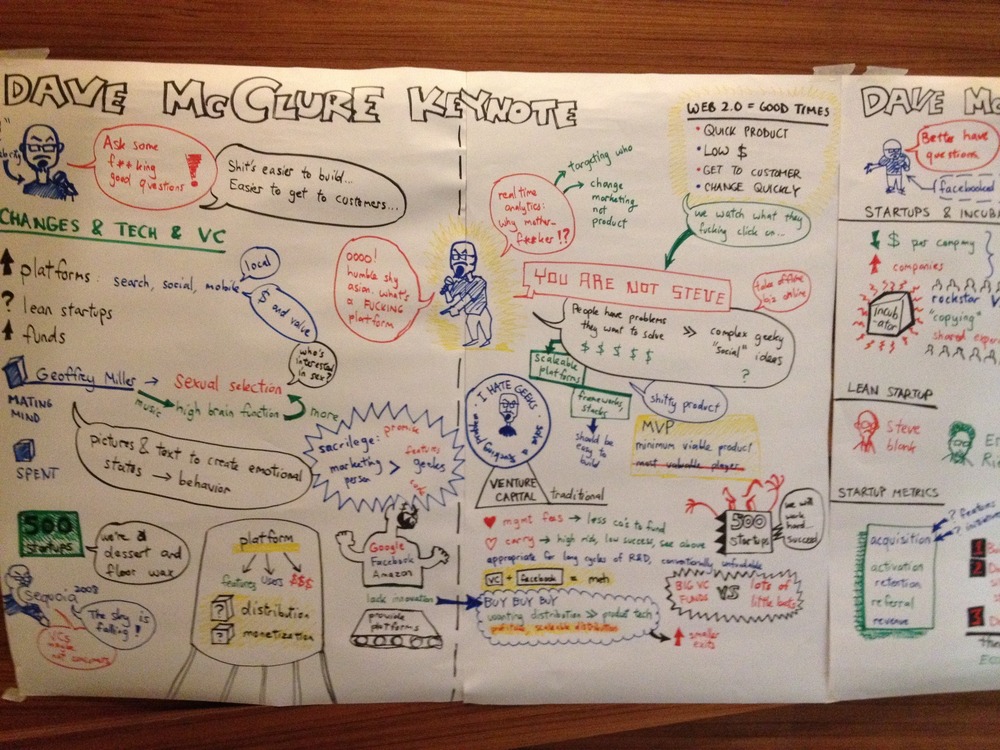 DAVE McCLURE KEYNOTE
Ask some
f**king
good questions!
Shit's easier to build...
Easier to get to customers...
CHANGES & TECH & VC
platforms
search, social, mobile
local
$ and value
? lean startups
funds
Geoffrey Miller → Sexual selection
who's
interested
in sex?
MATING
MIND
music
high brain function
more
SPENT
pictures & text to create emotional
states → behavior
sacrilege:
marketing
person
>
promise
features
geeks
code
500
startups
we're a
dessert and
floor wax
Sequoia 2008
The sky is
falling!
VCs
maybe
not consumers
platform
features users $$$
? distribution
? monetization
Google
Facebook
Amazon
lack innovation
provide
platforms
oooo!
humble shy
asian. what's
a FUCKING
platform
real time
analytics:
why mother-
f**ker!?
targeting who
change
marketing
not
product
WEB 2.0 = GOOD TIMES
• QUICK PRODUCT
• LOW $
• GET TO CUSTOMER
• CHANGE QUICKLY
we watch what they
fucking click on...
YOU ARE NOT STEVE
take offline
biz online
People have problems
they want to solve
$ $ $ $ $
>>
complex geeky
"social" ideas
?
scaleable
platforms
frameworks,
stacks
should be
easy to
build
shitty product
MVP
minimum viable product
most valuable player
I HATE GEEKS. solve a fucking problem
VENTURE
CAPITAL
traditional
mgmt fees → less co's to fund
carry → high risk, low success, see above
appropriate for long cycles of R&D, conventionally unfundable
VC + facebook = meh
BUY BUY BUY
wanting distribution >> product tech
profitable, scaleable distribution
smaller
exits
500
startups
we will
work
hard...
succeed
BIG VC
FUNDS
VS
lots of
little bets
DAVE Mc
Better have
questions
facebooked
STARTUPS & INCUBA
$ per company
companies
incub
ator
rockstar
"copying"
shared exper
LEAN STARTUP
Steve
blank
Er
Ri
STARTUP METRICS
? features
acquisition
activation
retention
referral
revenue
1
2
3